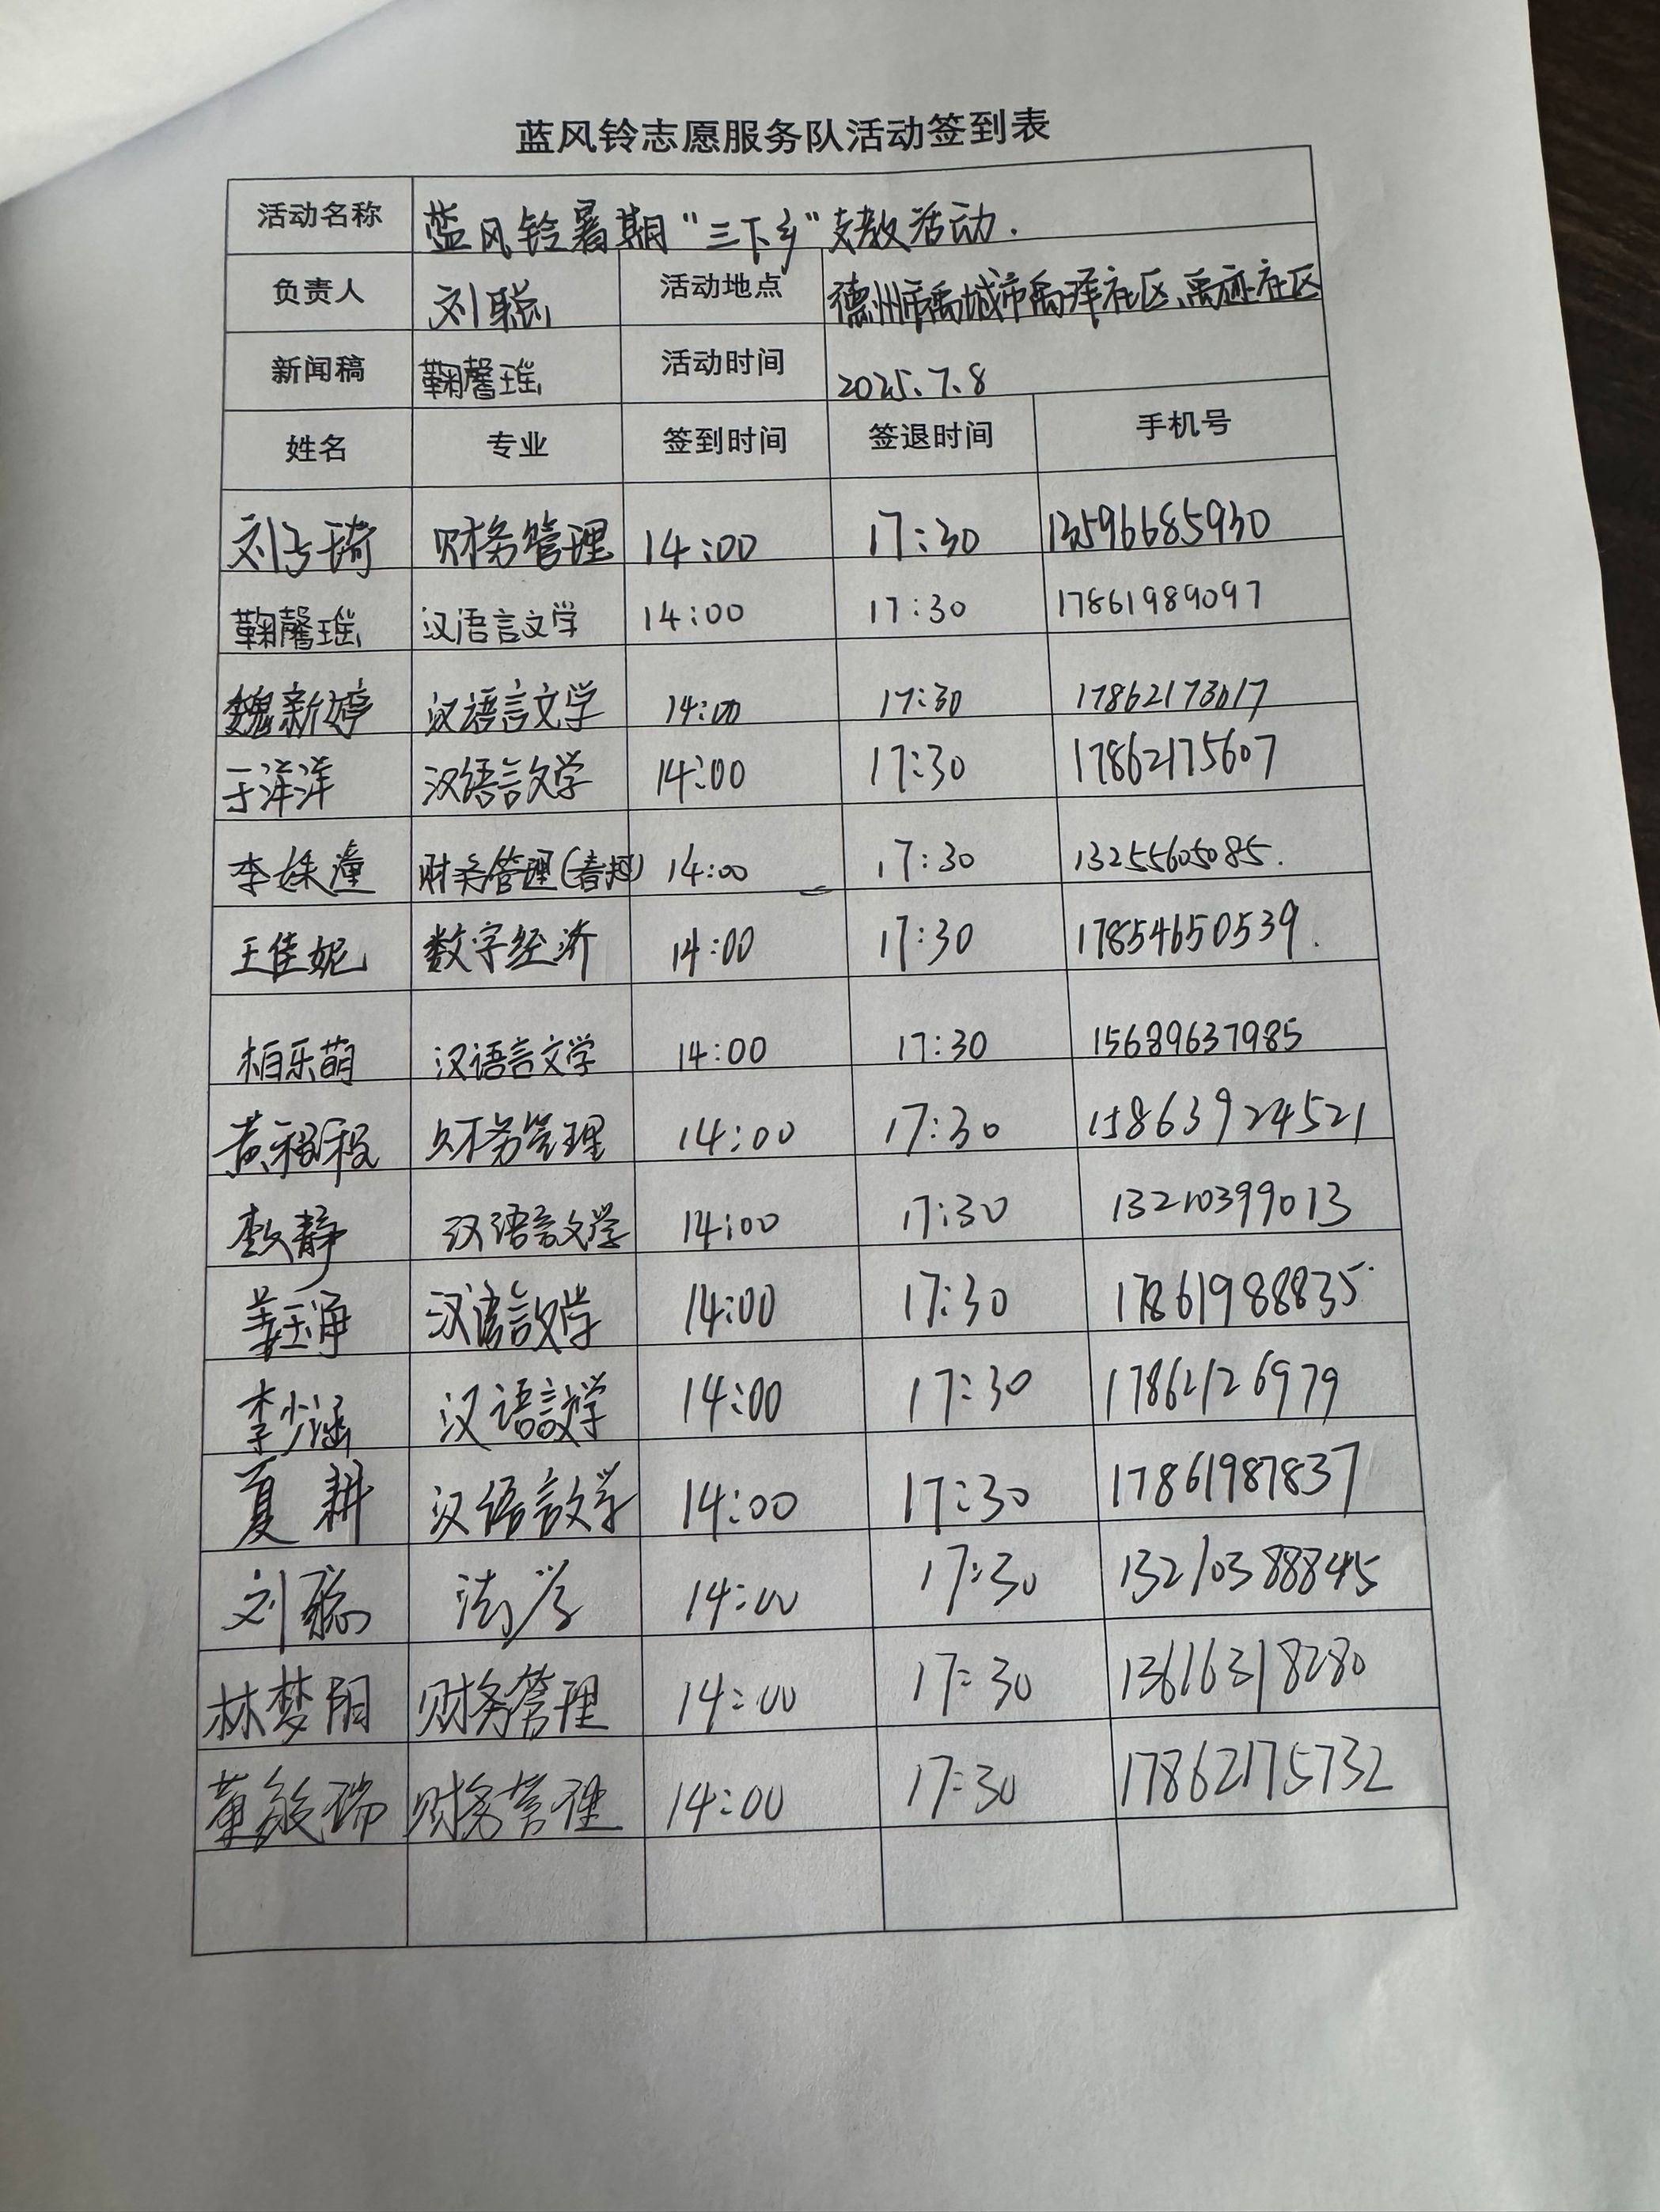 蓝风铃志愿服务队活动签到表
活动名称 蓝风铃暑期“三下乡”支教活动.
负责人 刘聪 活动地点 德州市禹城市禹泽社区、禹迹社区
新闻稿 鞠馨瑶 活动时间 2025.7.8
姓名 专业 签到时间 签退时间 手机号
刘子琦 财务管理 14:00 17:30 13596685930
鞠馨瑶 汉语言文学 14:00 17:30 17861989097
魏新婷 汉语言文学 14:00 17:30 17862173017
于洋洋 汉语言文学 14:00 17:30 17862175607
李姝潼 财务管理(春招) 14:00 17:30 13255605085.
王佳妮 数字经济 14:00 17:30 17854650539.
柏乐萌 汉语言文学 14:00 17:30 15689637985
黄 财务管理 14:00 17:30 15863924521
静 汉语言文学 14:00 17:30 13210399013
姜玉海 汉语言文学 14:00 17:30 17861988835
李少涵 汉语言文学 14:00 17:30 17862126979
夏耕 汉语言文学 14:00 17:30 17861987837
刘聪 法学 14:00 17:30 13210388845
林梦阳 财务管理 14:00 17:30 13616318280
董敏瑞 财务管理 14:00 17:30 17862175732